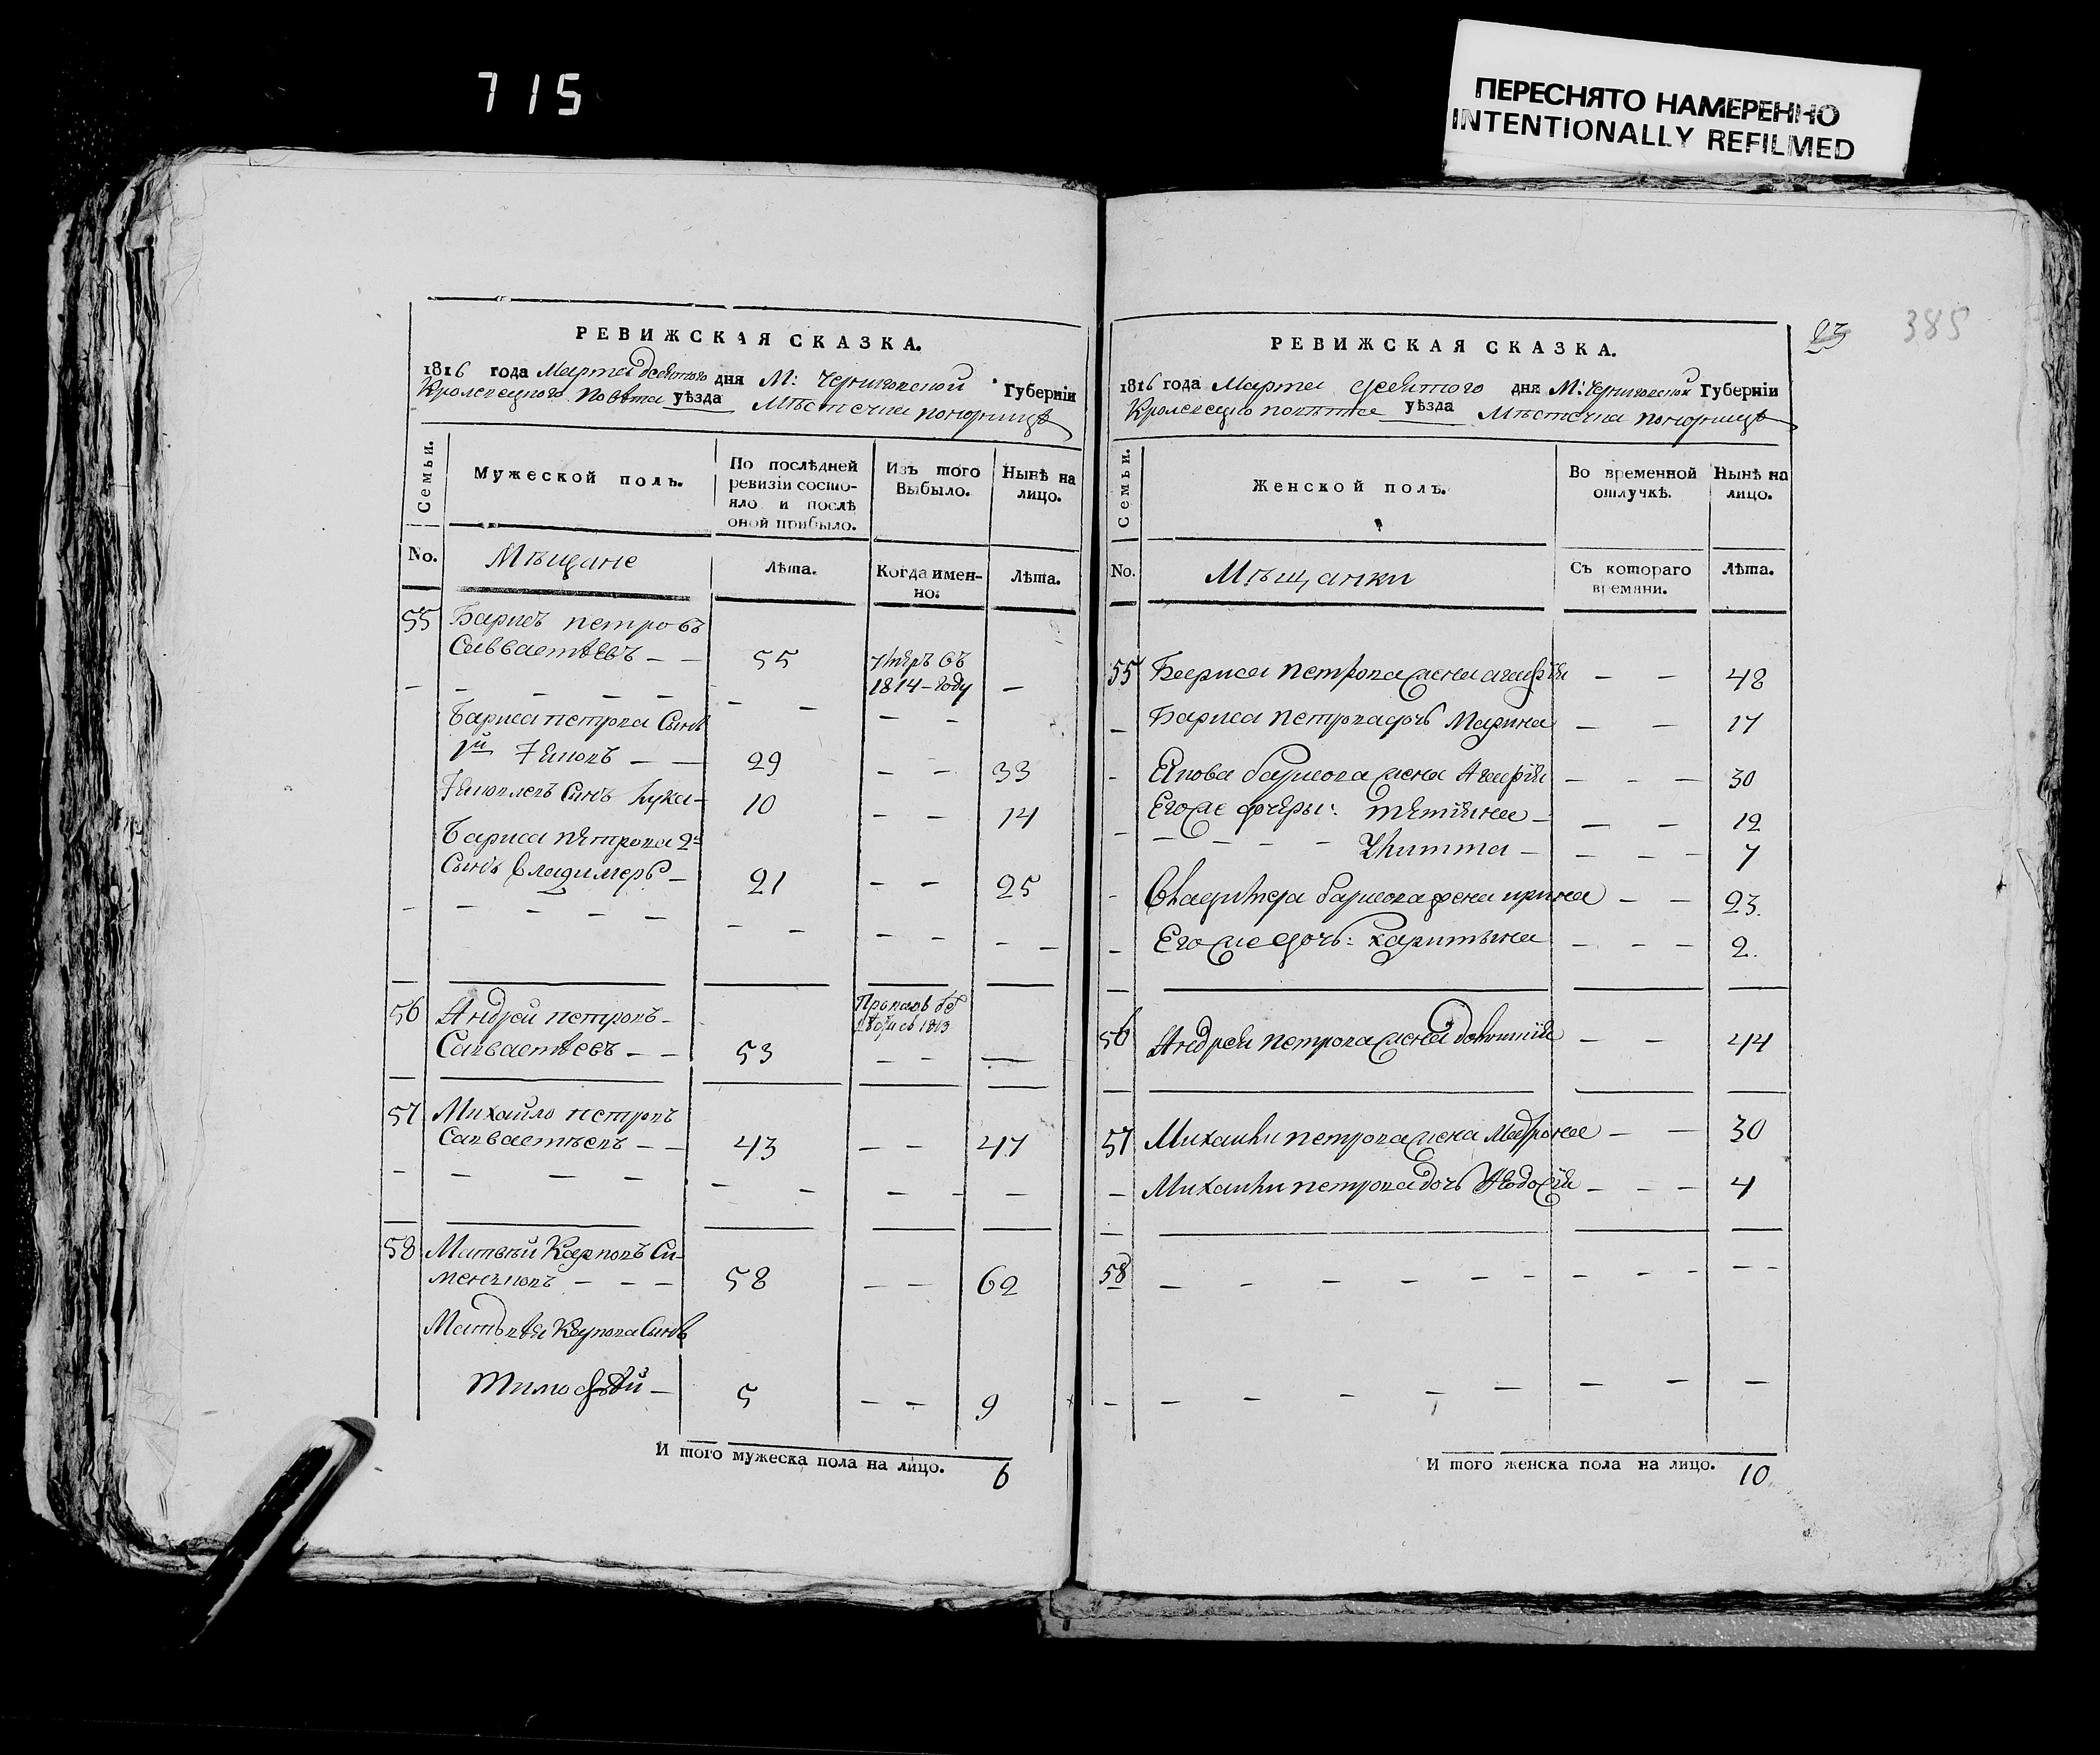 715
ПЕРЕСНЯТО НАМЕРЕННО
INTENTIONALLY REFILMED
РЕВИЖСКАЯ СКАЗКА.
1816 года Марта девятого дня М: Черниговской Губерніи
Кролевецкого Повѣта уѣзда Мѣстечка Понорницѣ
Семьи.
Мужеской полъ.
По послѣдней ревизіи состо-
яло и послѣ
оной прибыло.
Изъ того
Выбыло.
Нынѣ на
лицо.
No.
Мѣщане
Лѣта.
Когда имен-
но.
Лѣта.
55 Барисъ петровъ
Савватѣевъ — — 55 умеръ въ
1814 - году —
Бариса петрова Сынъ
1й Яковъ — — 29 — — 33
Яковлевъ Сынъ Лука — 10 — — 14
Бариса петрова 2й
Сынъ Владимеръ — 21 — — 25
56 Андрей петровъ — Пропалъ без
1813
Савватѣевъ — — 53 — — —
57 Михайло петровъ
Савватѣевъ — — 43 — — 47
58 Матвѣй Карповъ Си-
меновъ — — — 58 — — 62
Матвѣя Карпова Сынъ
Тимофѣй — 5 — — 9
И того мужеска пола на лицо. 6
РЕВИЖСКАЯ СКАЗКА.
23
385
1816 года Марта девятого дня М: Черниговской Губерніи
Кролевецко повѣта уѣзда Мѣстечка Понорницѣ
Семьи.
Женской полъ.
Во временной
отлучкѣ.
Нынѣ на
лицо.
No.
Мѣщанки
Съ котораго
времяни.
Лѣта.
55 Бариса петрова жена агафія — — 48
— Бариса петрова дочь Марина — — 17
- Якова барисова жена Агафія — - — 30
— Егоже дочеры: тетіяна — — — 12
Улита — — - — 7
- Владимера барисова жена ирина — — 23.
— Егоже дочь: харитына — — — 2.
56 Андрея петрова жена — — 44
57 Михайли петрова жена Матрона — — 30
— Михайли петрова дочь Феодосія — - — 4
58
И того женска пола на лицо. 10